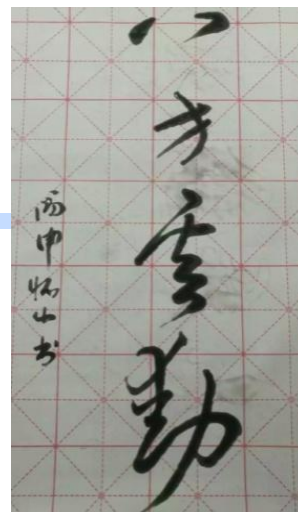 八方云動
丙申怀山书